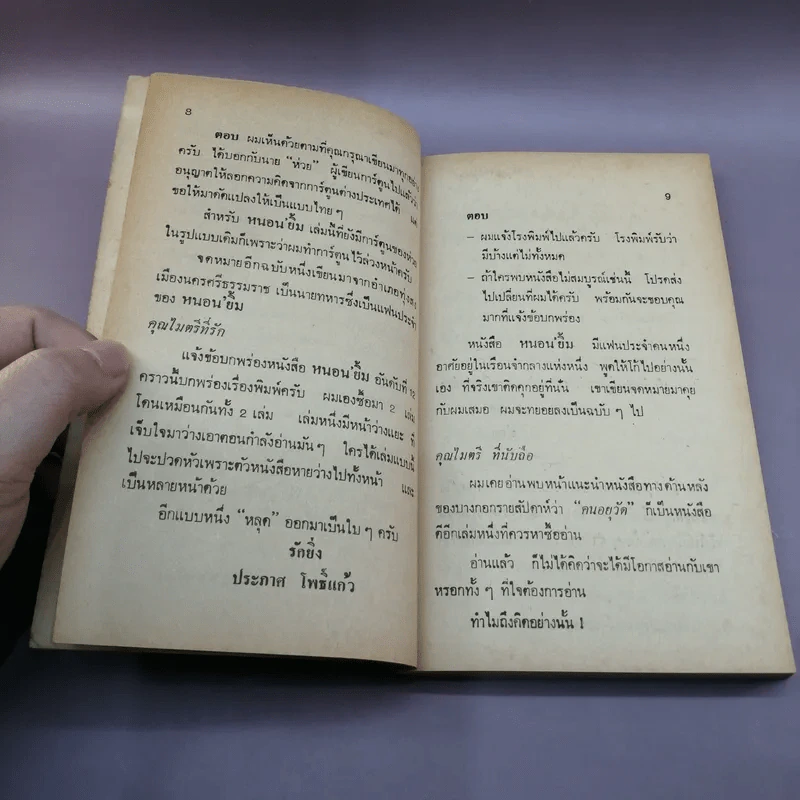 8
ตอบ ผมเห็นด้วยตามที่คุณกรุณาเขียนมาทุกอย่าง
ครับ ได้บอกกับนาย “ห่วย” ผู้เขียนการ์ตูนไปแล้วว่า
อนุญาตให้ลอกความคิดจากการ์ตูนต่างประเทศได้ แต่
ขอให้มาดัดแปลงให้เป็นแบบไทย ๆ
สำหรับ หนอน'ยิ้ม เล่มนี้ที่ยังมีการ์ตูนของห่วย
ในรูปแบบเดิมก็เพราะว่าผมทำการ์ตูนไว้ล่วงหน้าครับ
จดหมายอีกฉบับหนึ่งเขียนมาจากอำเภอทุ่งสง
เมืองนครศรีธรรมราช เป็นนายทหารซึ่งเป็นแฟนประจำ
ของ หนอน'ยิ้ม
คุณไมตรีที่รัก
แจ้งข้อบกพร่องหนังสือ หนอน'ยิ้ม อันดับที่ 12
คราวนี้บกพร่องเรื่องพิมพ์ครับ ผมเองซื้อมา 2 เล่ม
โดนเหมือนกันทั้ง 2 เล่ม เล่มหนึ่งมีหน้าว่างแยะ ที่
เจ็บใจมาว่างเอาตอนกำลังอ่านมัน ๆ ใครได้เล่มแบบนี้
ไปจะปวดหัวเพราะตัวหนังสือหายว่างไปทั้งหน้า และ
เป็นหลายหน้าด้วย
อีกแบบหนึ่ง “หลุด” ออกมาเป็นใบ ๆ ครับ
รักยิ่ง
ประภาศ โพธิ์แก้ว
9
ตอบ
– ผมแจ้งโรงพิมพ์ไปแล้วครับ โรงพิมพ์รับว่า
มีบ้างแต่ไม่ทั้งหมด
– ถ้าใครพบหนังสือไม่สมบูรณ์เช่นนี้ โปรดส่ง
ไปเปลี่ยนที่ผมได้ครับ พร้อมกันจะขอบคุณ
มากที่แจ้งข้อบกพร่อง
หนังสือ หนอน'ยิ้ม มีแฟนประจำคนหนึ่ง
อาศัยอยู่ในเรือนจำกลางแห่งหนึ่ง พูดให้โก้ไปอย่างนั้น
เอง ที่จริงเขาติดคุกอยู่ที่นั่น เขาเขียนจดหมายมาคุย
กับผมเสมอ ผมจะทยอยลงเป็นฉบับ ๆ ไป
คุณไมตรี ที่นับถือ
ผมเคยอ่านพบหน้าแนะนำหนังสือทางด้านหลัง
ของบางกอกรายสัปดาห์ว่า “คนอยุวัด” ก็เป็นหนังสือ
ดีอีกเล่มหนึ่งที่ควรหาซื้ออ่าน
อ่านแล้ว ก็ไม่ได้คิดว่าจะได้มีโอกาสอ่านกับเขา
หรอกทั้ง ๆ ที่ใจต้องการอ่าน
ทำไมถึงคิดอย่างนั้น !